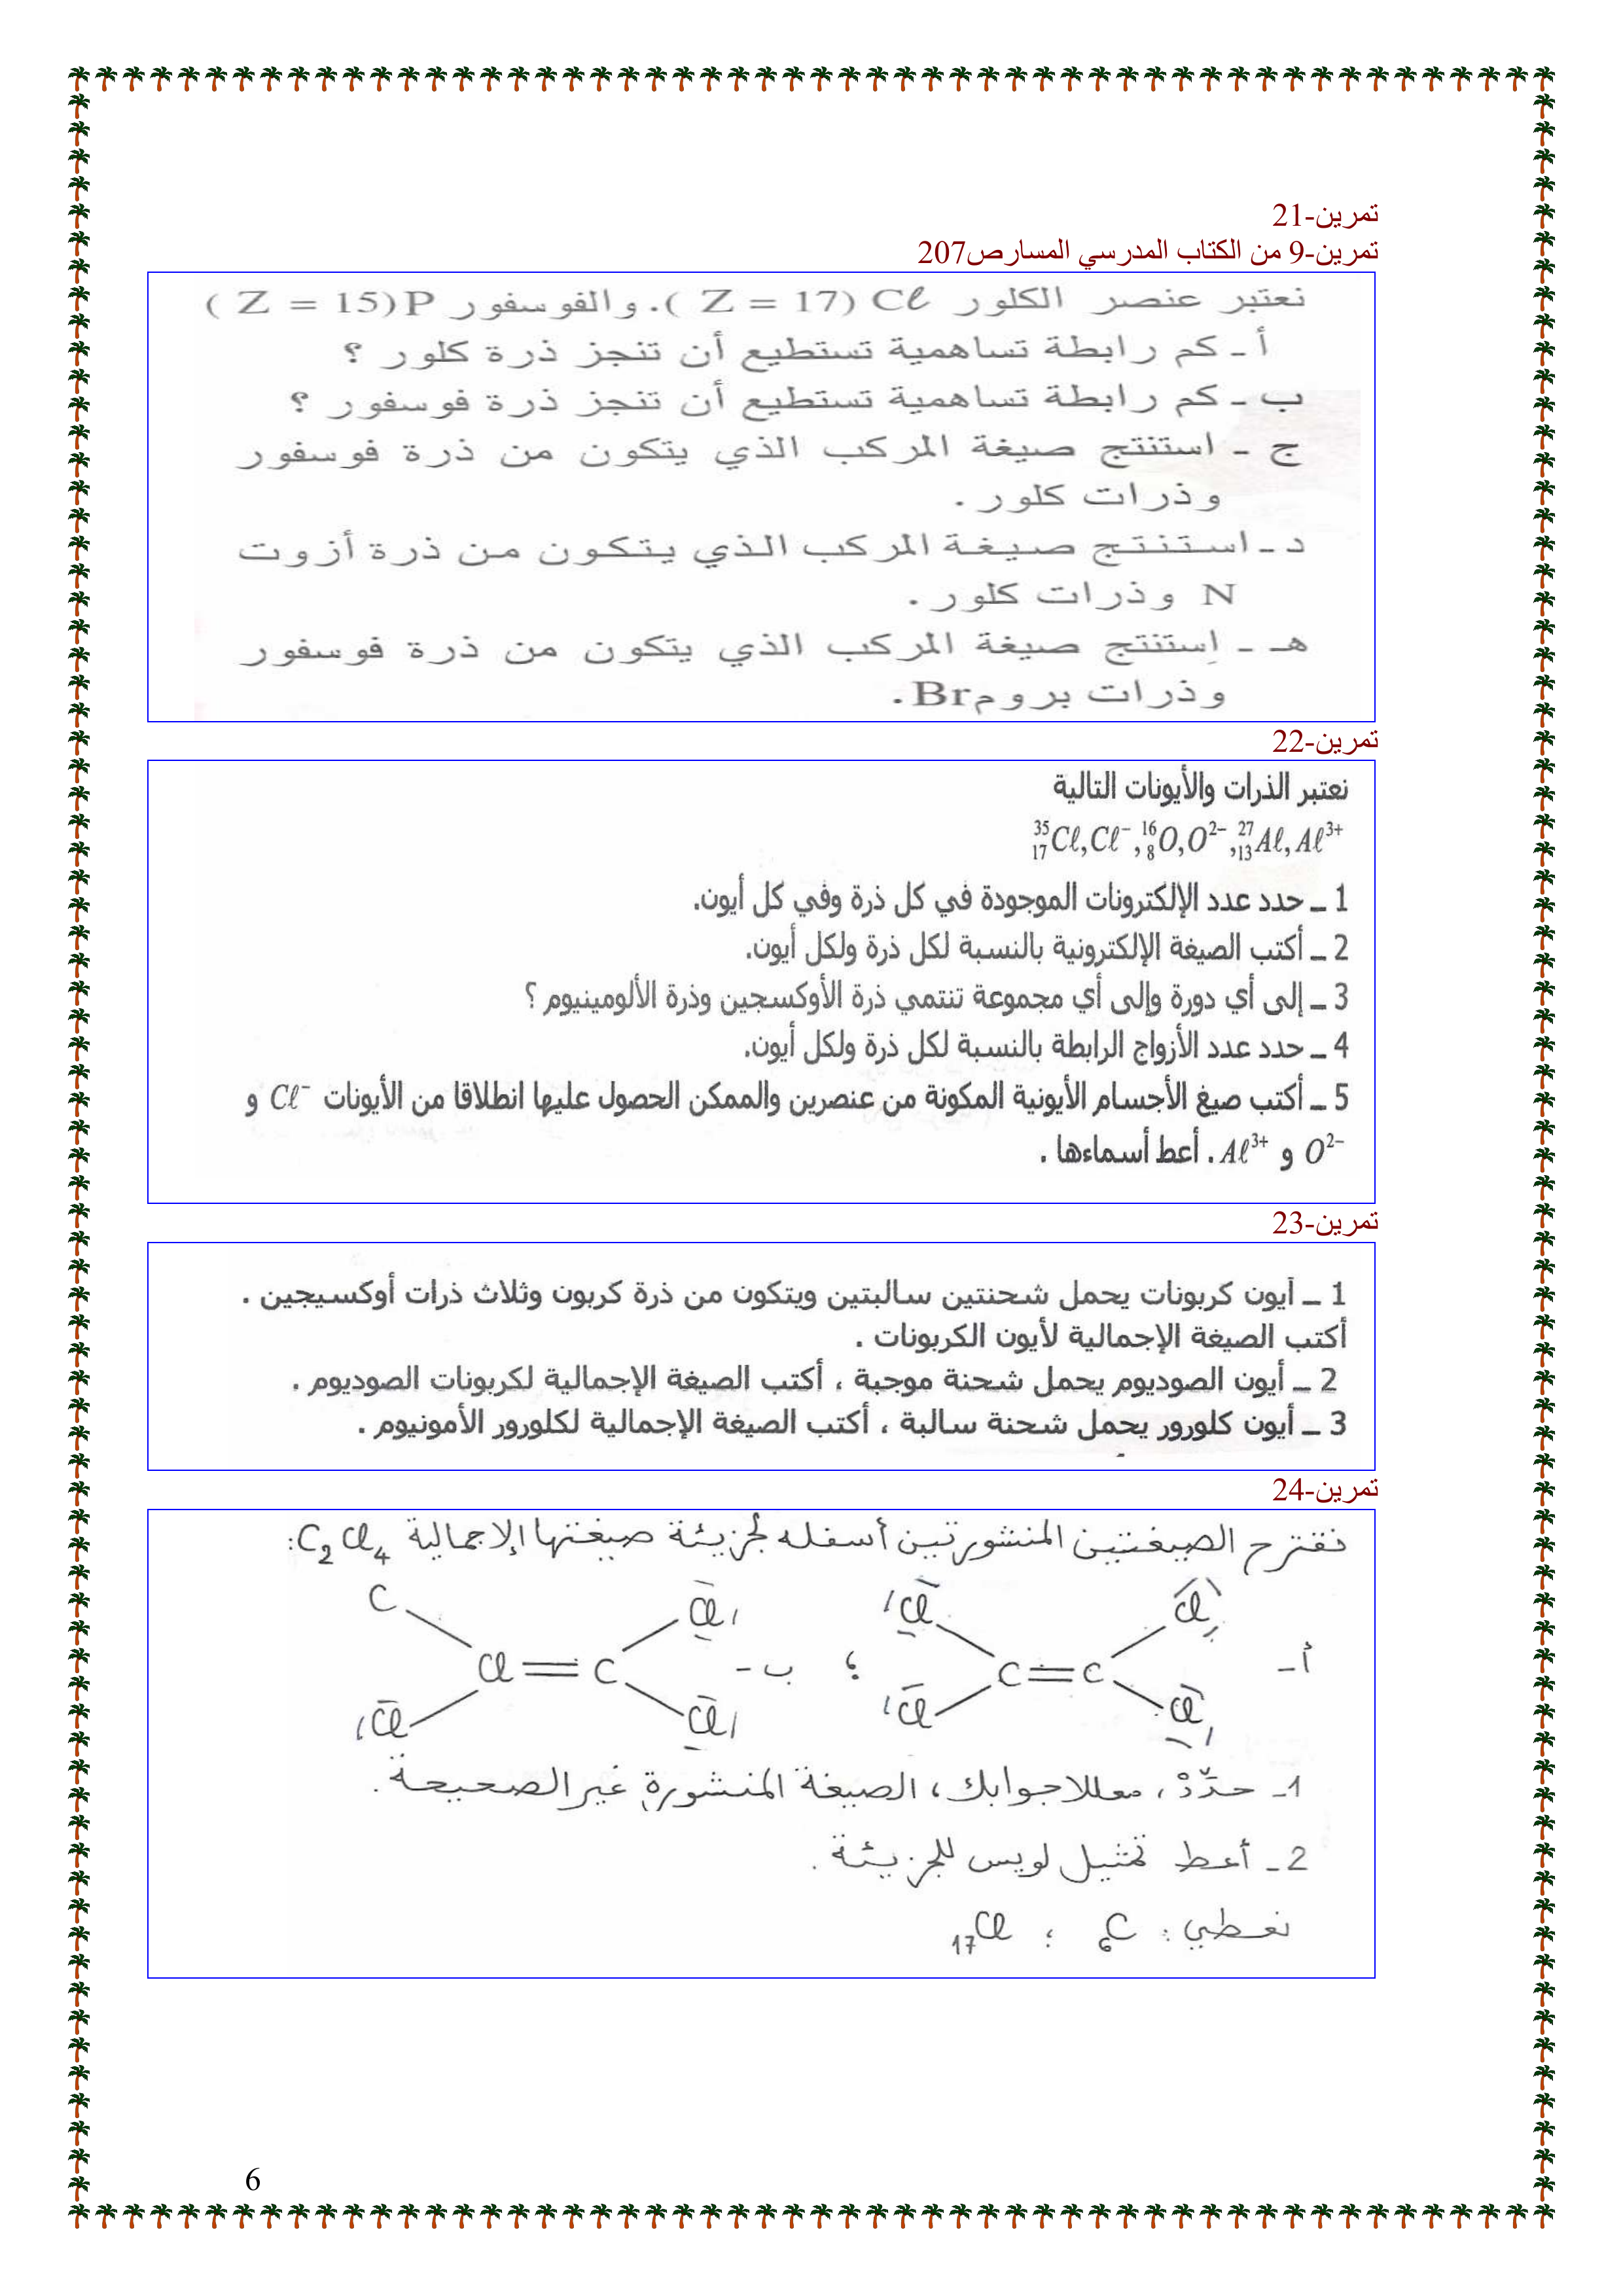 تمرين-21
تمرين-9 من الكتاب المدرسي المسارص207
نعتبر عنصر الكلور Cℓ (Z = 17). والفوسفور P(Z = 15)
أ - كم رابطة تساهمية تستطيع أن تنجز ذرة كلور ؟
ب - كم رابطة تساهمية تستطيع أن تنجز ذرة فوسفور ؟
ج - استنتج صيغة المركب الذي يتكون من ذرة فوسفور
وذرات كلور .
د - استنتج صيغة المركب الذي يتكون من ذرة أزوت
N وذرات كلور .
هـ - إستنتج صيغة المركب الذي يتكون من ذرة فوسفور
وذرات برومBr .
تمرين-22
نعتبر الذرات والأيونات التالية
³⁵₁₇Cℓ, Cℓ⁻, ¹⁶₈O, O²⁻, ²⁷₁₃Aℓ, Aℓ³⁺
1 ــ حدد عدد الإلكترونات الموجودة في كل ذرة وفي كل أيون.
2 ــ أكتب الصيغة الإلكترونية بالنسبة لكل ذرة ولكل أيون.
3 ــ إلى أي دورة وإلى أي مجموعة تنتمي ذرة الأوكسجين وذرة الألومينيوم ؟
4 ــ حدد عدد الأزواج الرابطة بالنسبة لكل ذرة ولكل أيون.
5 ــ أكتب صيغ الأجسام الأيونية المكونة من عنصرين والممكن الحصول عليها انطلاقا من الأيونات Cℓ⁻ و
O²⁻ و Aℓ³⁺ . أعط أسماءها .
تمرين-23
1 ــ أيون كربونات يحمل شحنتين سالبتين ويتكون من ذرة كربون وثلاث ذرات أوكسيجين .
أكتب الصيغة الإجمالية لأيون الكربونات .
2 ــ أيون الصوديوم يحمل شحنة موجبة ، أكتب الصيغة الإجمالية لكربونات الصوديوم .
3 ــ أيون كلورور يحمل شحنة سالبة ، أكتب الصيغة الإجمالية لكلورور الأمونيوم .
تمرين-24
نقترح الصيغتين المنشورتين أسفله لجزيئة صيغتها الإجمالية C₂Cl₄:
Cl Cl C Cl
أ- C=C ؛ ب- Cl=C
Cl Cl Cl Cl
1- حدّدْ، معللا جوابك، الصيغة المنشورة غير الصحيحة.
2- أعط تمثيل لويس للجزيئة.
نعطي: ₆C ؛ ₁₇Cl
6